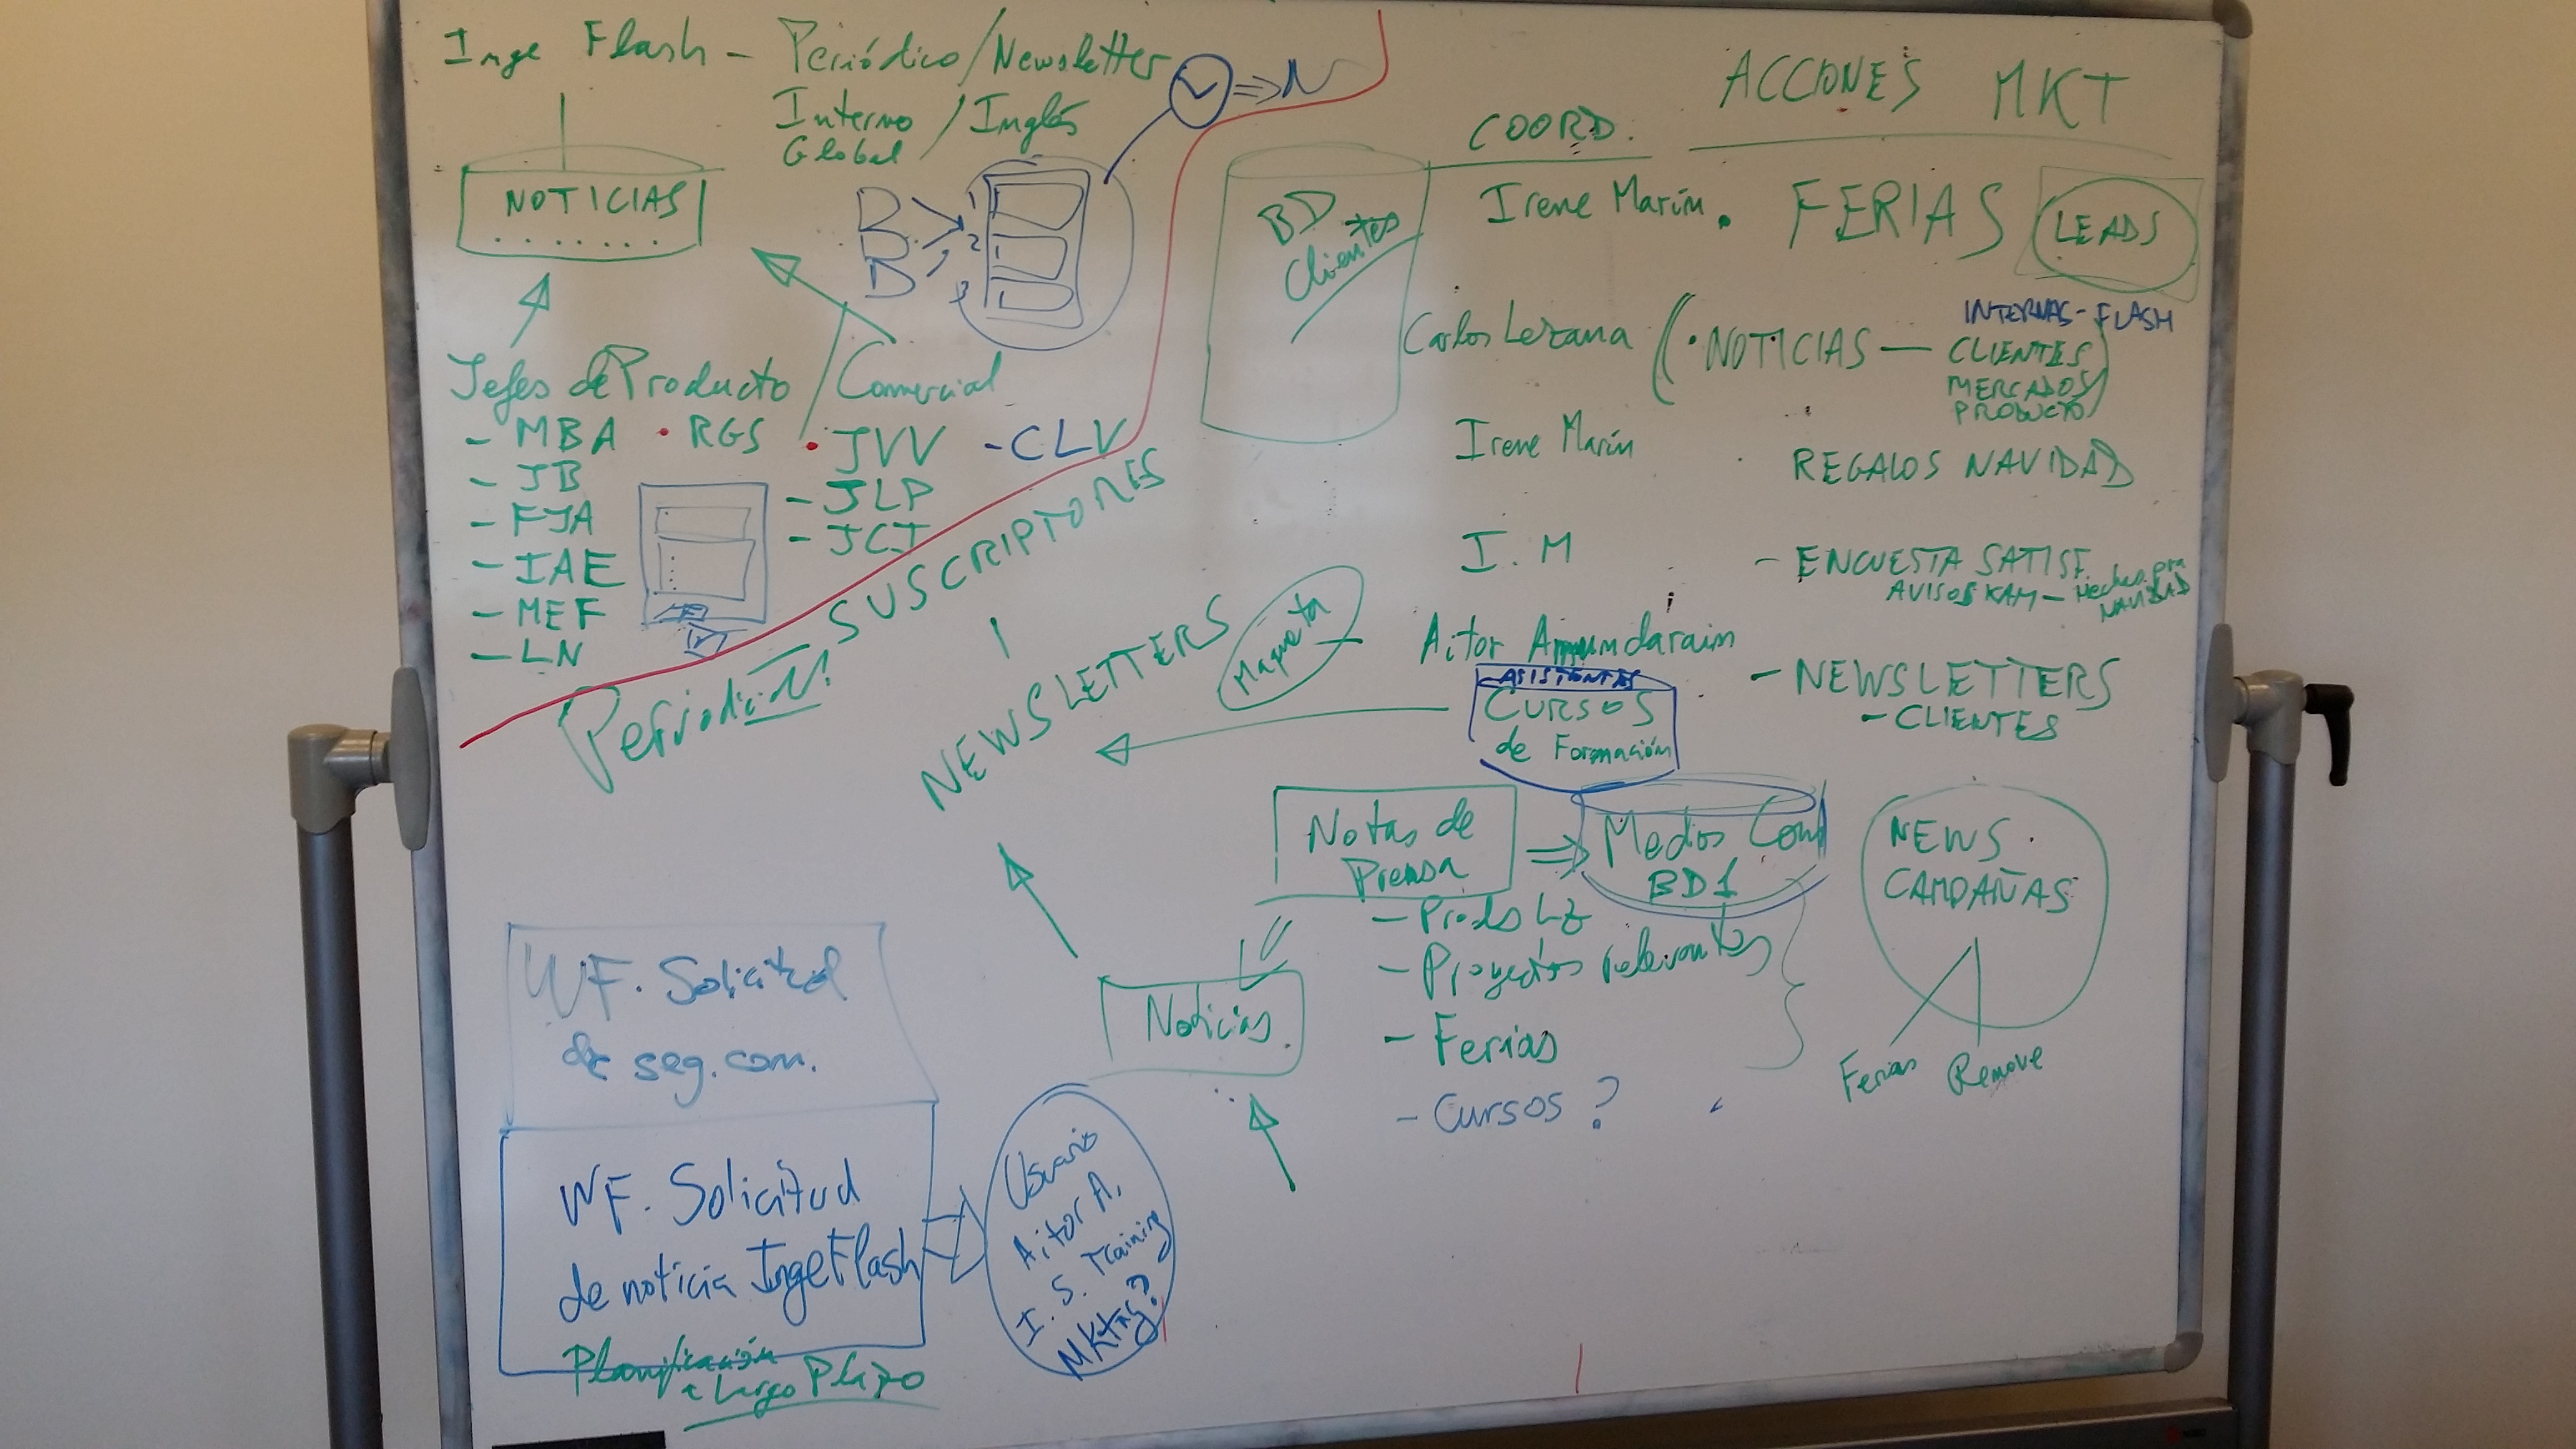 Inge Flash - Periódico/Newsletter
Interno / Inglés
Global
NOTICIAS
1
2
3
=> N
Jefes de Producto / Comercial
- MBA • RGS
- JB
- FJA
- IAE
- MEF
- LN
• JVV - CLV
- JLP
- JCJ
SUSCRIPTORES
NEWSLETTERS
Maqueta
BD
Clientes
COORD.
ACCIONES MKT
Irene Marín • FERIAS LEADS
Carlos Lezana (• NOTICIAS — INTERNAS - FLASH
CLIENTES
MERCADOS
PRODUCTO
Irene Marín REGALOS NAVIDAD
I. M - ENCUESTA SATISF.
AVISOS KAM -
NAVIDAD
Aitor Amundarain
- NEWSLETTERS
- CLIENTES
ASISTENTES
CURSOS
de Formación
Notas de
Prensa
=> Medios Com
BD1
- Prods LZ
- Proyectos relevantes
- Ferias
- Cursos ?
Noticias.
NEWS.
CAMPAÑAS
Ferias Remove
WF. Solicitud
de seg. com.
WF. Solicitud
de noticia IngeFlash
Planificación
a Largo Plazo
Usuario
Aitor A.
I. S. Training
MKtng?